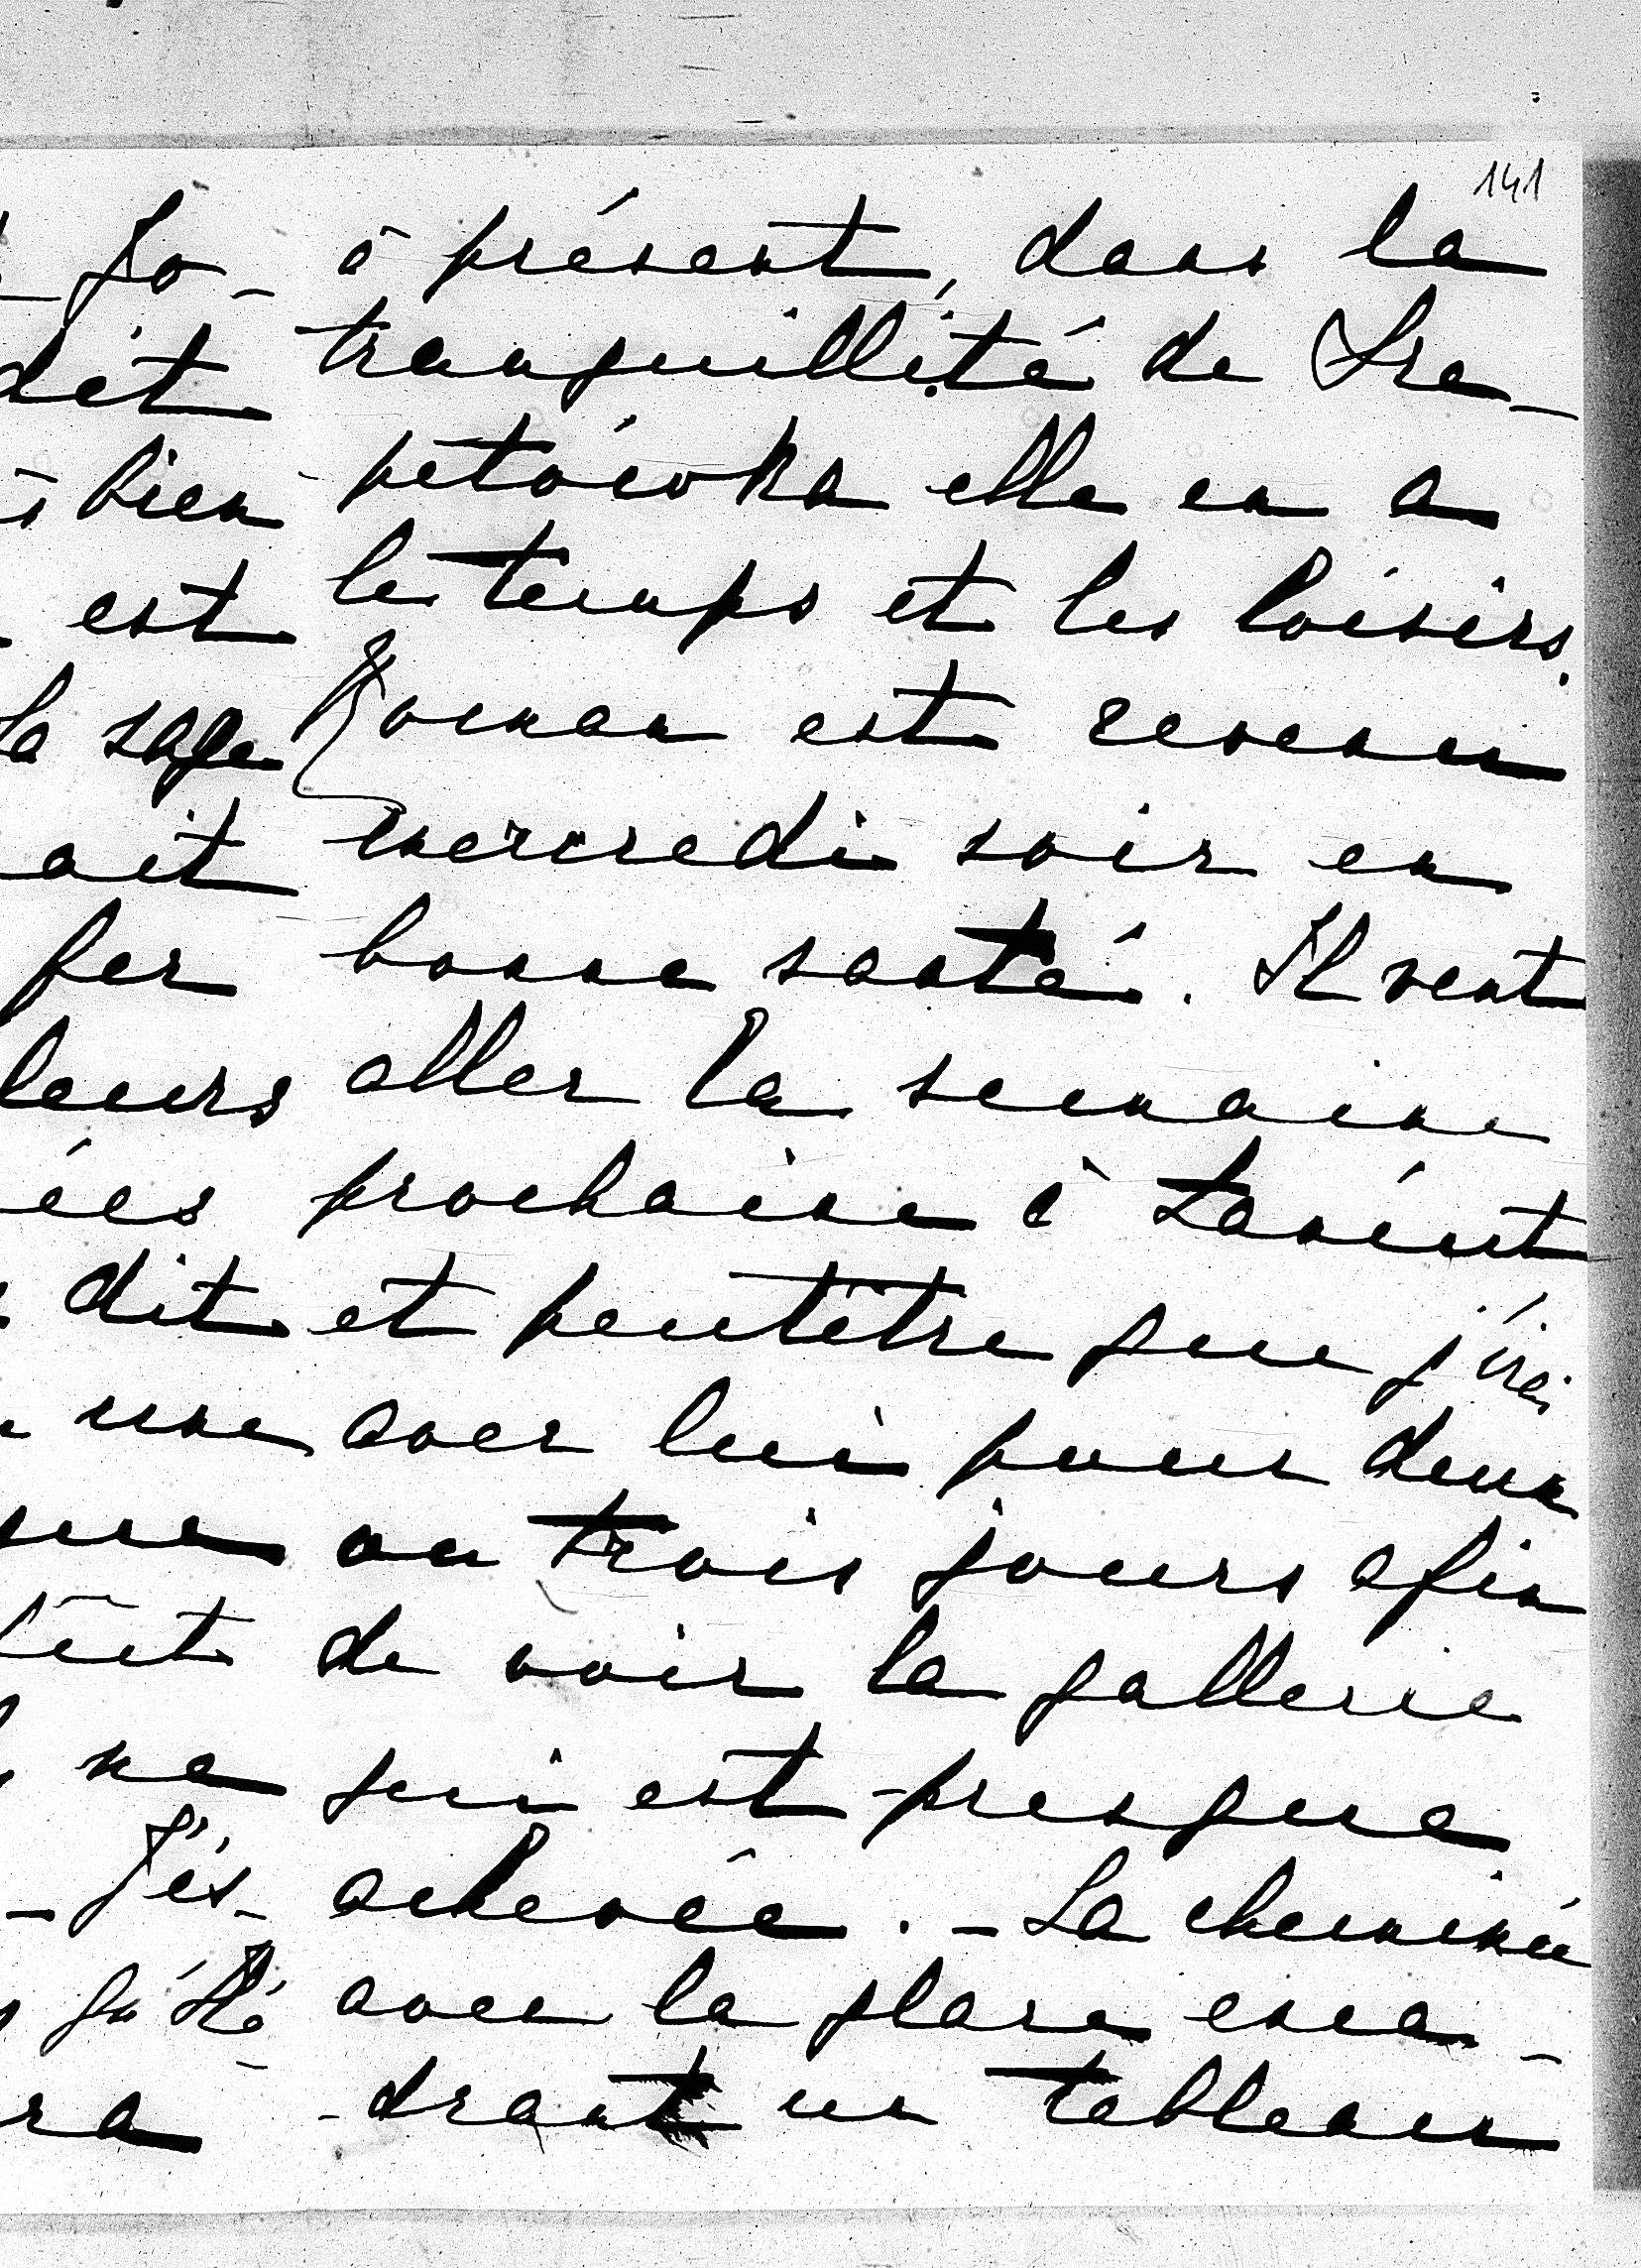 141
Jo-
dit
bien
est
la sage
ait
fer
leurs
ées
dit
une
que
ne
J'es-
ra
à présent, dans la
tranquillité de Sze-
petówka elle en a
le temps et les loisirs.
Roman est revenu
mercredi soir en
bonne santé. Il veut
aller la semaine
prochaine à Lańcut
et peutêtre que j'irai
avec lui pour deux
ou trois jours afin
de voir la gallerie
qui est presque
achevée. - La cheminée
avec la glace enca-
-drant un tableau